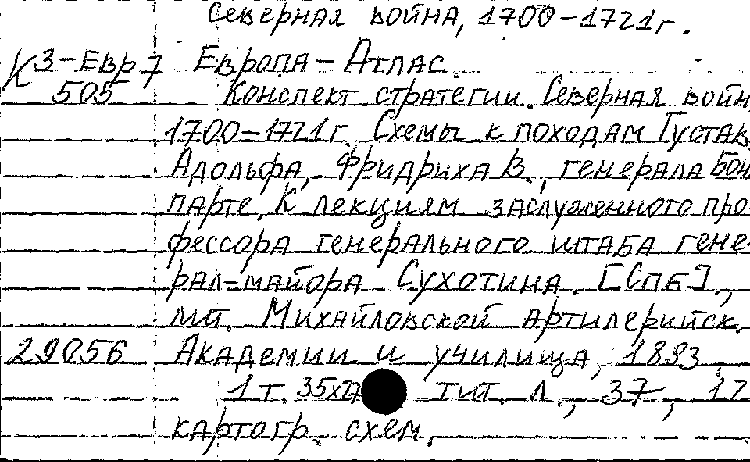 Северная война, 1700-1721г.
К3-Евр7 Европа-Атлас.
505 Конспект стратегии. Северная войн
1700-1721г. Схемы к походам Густав
Адольфа, Фридриха В., генерала Бон
парте. К лекциям заслуженного про
фессора генерального штаба гене-
рал-майора Сухотина. [Спб],
лит. Михайловской артилерийск.
29056 Академии и училища, 1893.
1 т. 35х тит. л., 37, 17
картогр. схем.